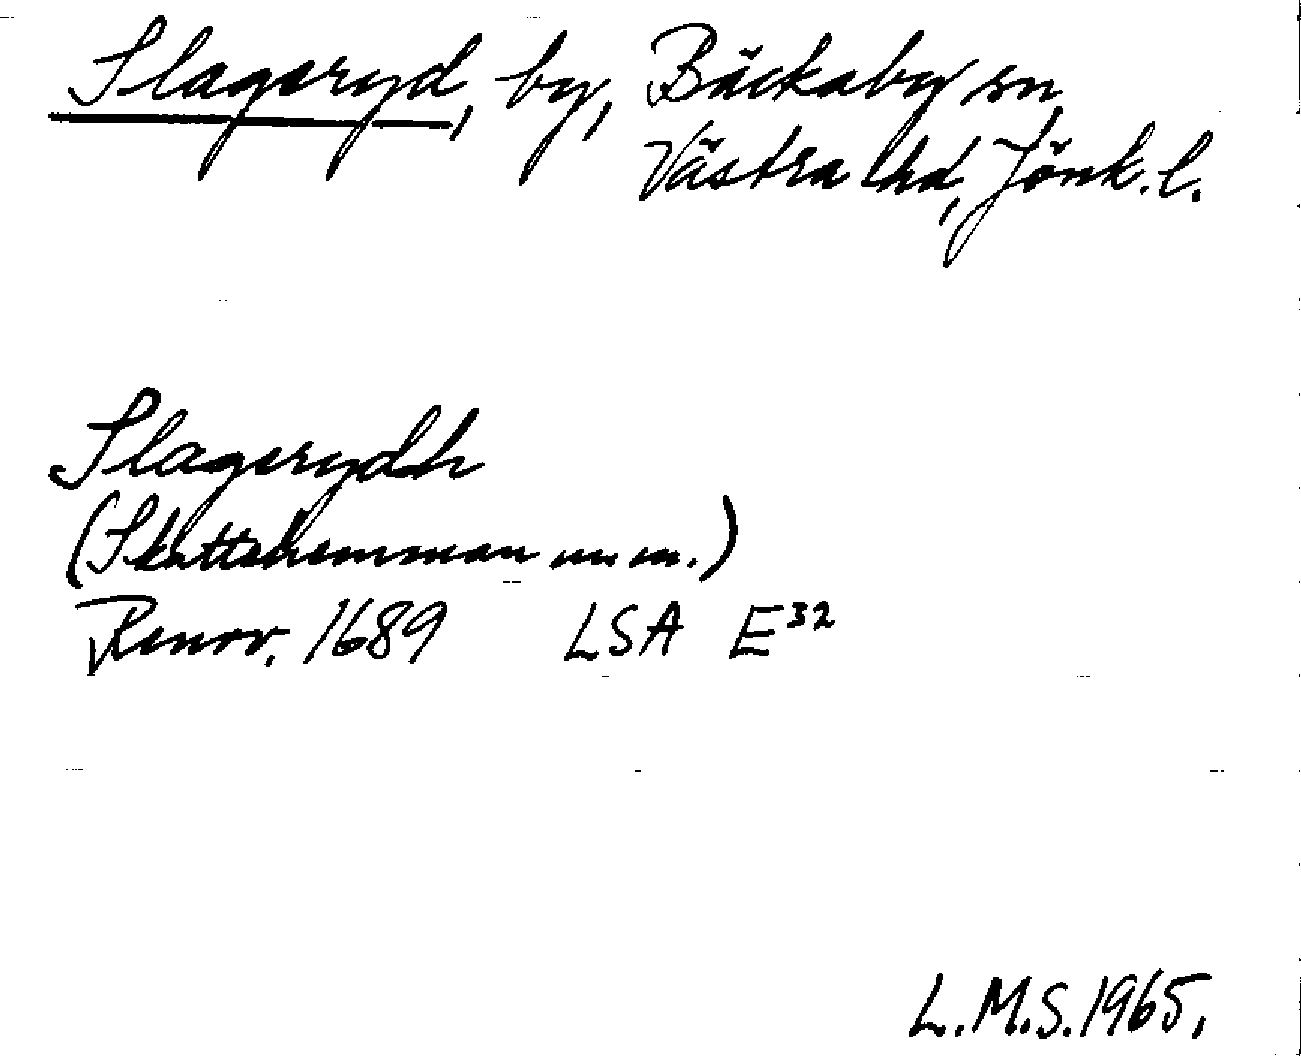 Slageryd, by, Bäckaby sn,
Västra hd, Jönk. l.
Slagerydh
(Skattehemman m. m.)
Renov. 1689 LSA E³²
L.M.S. 1965.